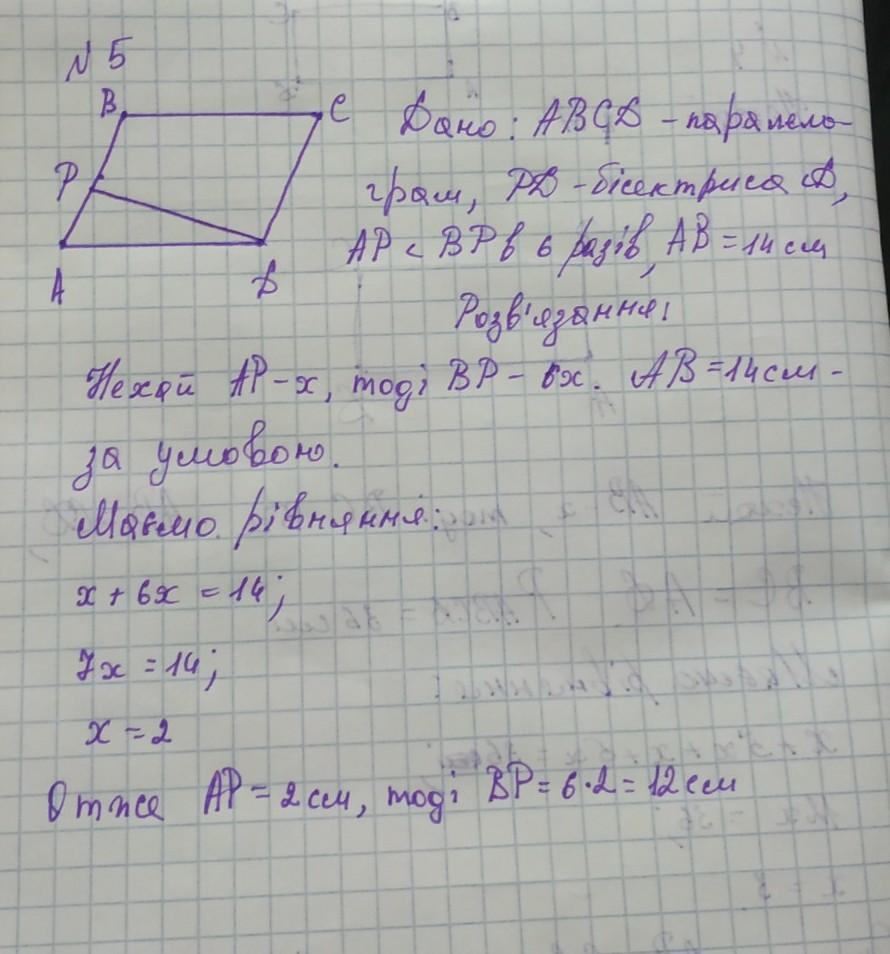 N 5
B
C
P
A
D
Дано: ABCD - паралело-
грам, PD - бісектриса D,
AP < BP в 6 разів, AB = 14 см
Розв'язання:
Нехай AP - x, тоді BP - 6x. AB = 14 см -
за умовою.
Маємо рівняння:
x + 6x = 14;
7x = 14;
x = 2
Отже AP = 2 см, тоді BP = 6·2 = 12 см